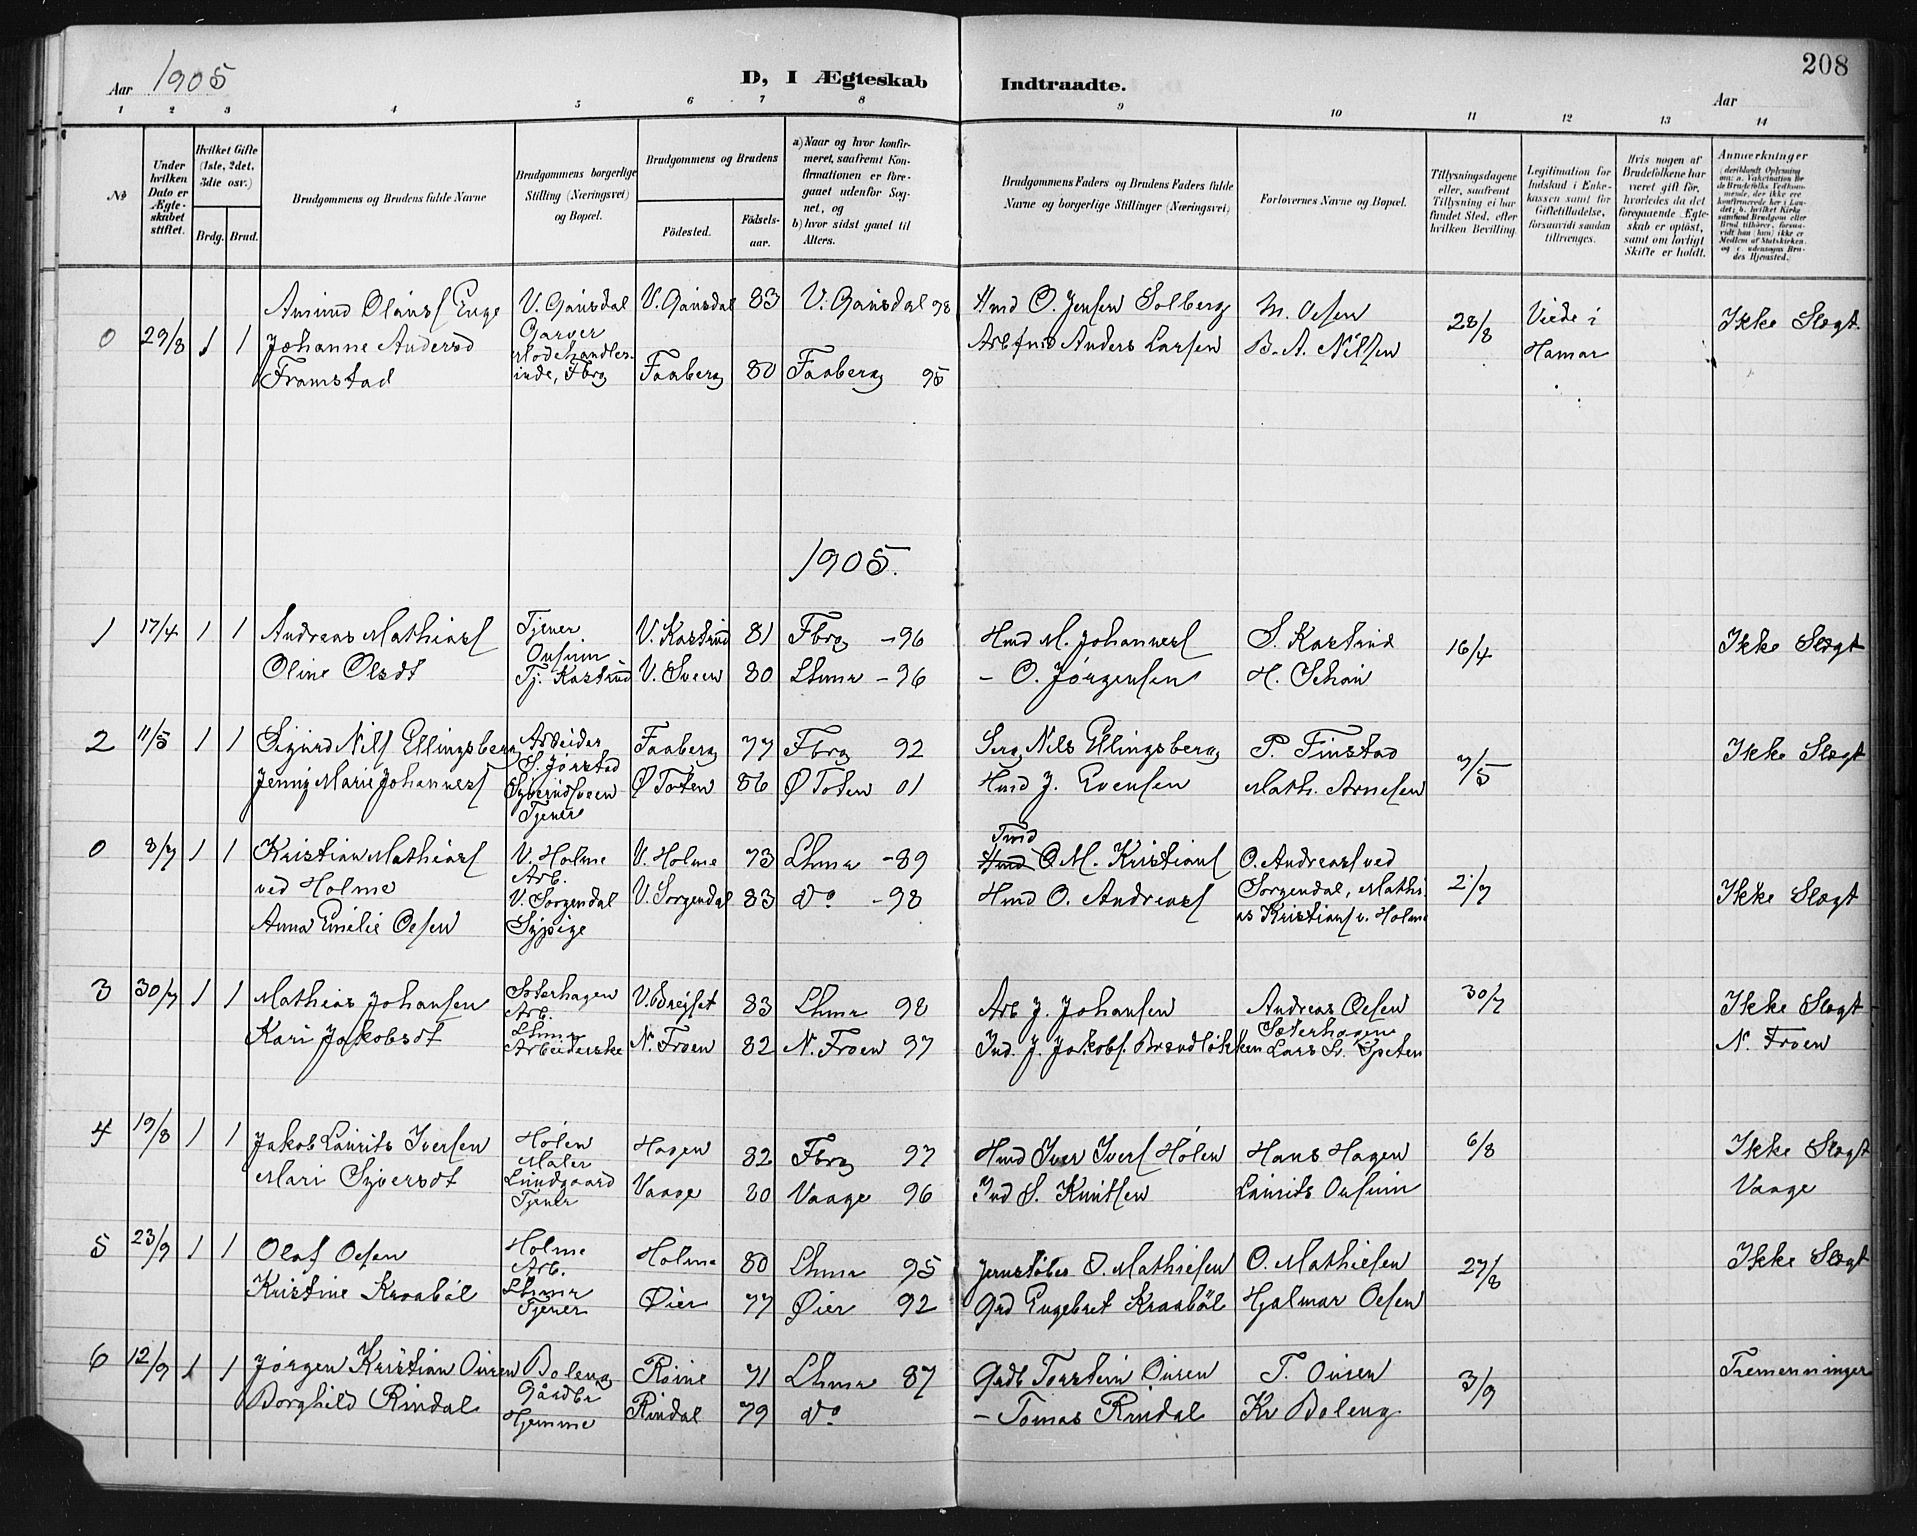 208
Aar 1905 D, I Ægteskab Indtraadte. Aar
1 2 3 4 5 6 7 8 9 10 11 12 13 14
No
Under hvilken Dato er Ægteskabet stiftet.
Hvilket Gifte (1ste, 2det, 3die osv.)
Brdg. Brud.
Brudgommens og Brudens fulde Navne
Brudgommens borgerlige Stilling (Næringsvei) og Bopæl.
Brudgommens og Brudens
Fødested. Fødselsaar.
a) Naar og hvor konfirmeret, saafremt Konfirmationen er foregaaet udenfor Sognet, og
b) hvor sidst gaaet til Alters.
Brudgommens Faders og Brudens Faders fulde Navne og borgerlige Stillinger (Næringsvei)
Forlovernes Navne og Bopæl.
Tillysningsdagene eller, saafremt Tillysning ei har fundet Sted, efter hvilken Bevilling.
Legitimation for Indskud i Enkekassen samt for Giftetilladelse, forsaavidt saadan tiltrænges.
Hvis nogen af Brudefolkene har været gift før, hvorledes da det foregaaende Ægteskab er opløst, samt om lovligt Skifte er holdt.
Anmærkninger
0 29/8 1 1 Amund Olausf Enge V. Gausdal Garver V. Gausdal 83 V. Gausdal 98 Hmd O. Jensen Solberg M. Olsen 28/8 Viede i Hamar Ikke Slægt.
Johanne Andersd Framstad Modehandlerinde, Fbrg Faaberg 80 Faaberg 95 Anders Larsen B. A. Nilsen
1905.
1 17/4 1 1 Andreas Mathiasf Tjener V. Kastrud 81 Fbrg -96 Hmd M. Johannesf S. Kastrud 16/4 Ikke Slægt
Oline Olsdt Tj. Kastrud V. Sveen 80 Lhmr -96 - O. Jørgensen H. Schou
2 11/5 1 1 Sigurd Nilsf Ellingsberg Arbeider S. Jørstad Faaberg 77 Fbrg 92 Nils Ellingsberg P. Finstad 7/5 Ikke Slægt
Jenny Marie Johannesf Tjener Ø Toten 86 Ø Toten 01 Hmd J. Evensen Math. Arnesen
0 8/7 1 1 Kristian Mathiasf ved Holme V. Holme Arb. V. Holme 73 Lhmr -89 Tmd O M. Kristiansf O. Andreasf ved Sorgendal, Mathias Kristiansf v. Holme 2/7 Ikke Slægt
Anna Emilie Olsen V. Sorgendal Sypige V. Sorgendal 83 do -98 Hmd O. Andreasf
3 30/7 1 1 Mathias Johansen Sæterhagen Arb. 83 Lhmr 98 Arb J. Johansen Andreas Olsen Sæterhagen 30/7 Ikke Slægt
Kari Jakobsdt Lhmr Arbeiderske N. Froen 82 N. Froen 97 Ind. J. Jakobsf. Brændløkken Lars L. N. Froen
4 19/8 1 1 Jakob Laurits Iversen Holen Maler Hagen 82 Fbrg 97 Hmd Iver Iversf Holen Hans Hagen 6/8 Ikke Slægt
Mari Syversdt Lundgaard Tjener Vaage 80 Vaage 96 Ind S. Knutsen Laurits Vaage
5 23/9 1 1 Olaf Olsen Holme Arb. Holme 80 Lhmr 95 Jernstøber O. Mathiesen O. Mathiesen 27/8 Ikke Slægt
Kristine Kraabøl Lhmr Tjener Øier 77 Øier 92 Grd Engebret Kraabøl Hjalmar Olsen
6 12/9 1 1 Jørgen Kristian Ouren Boleng Gårdbr Roine 71 Lhmr 87 Grdb Torstein Ouren T. Ouren 3/9 Tremenninger
Borghild Rindal Hjemme Rindal 79 do - Tomas Rindal Kr Boleng